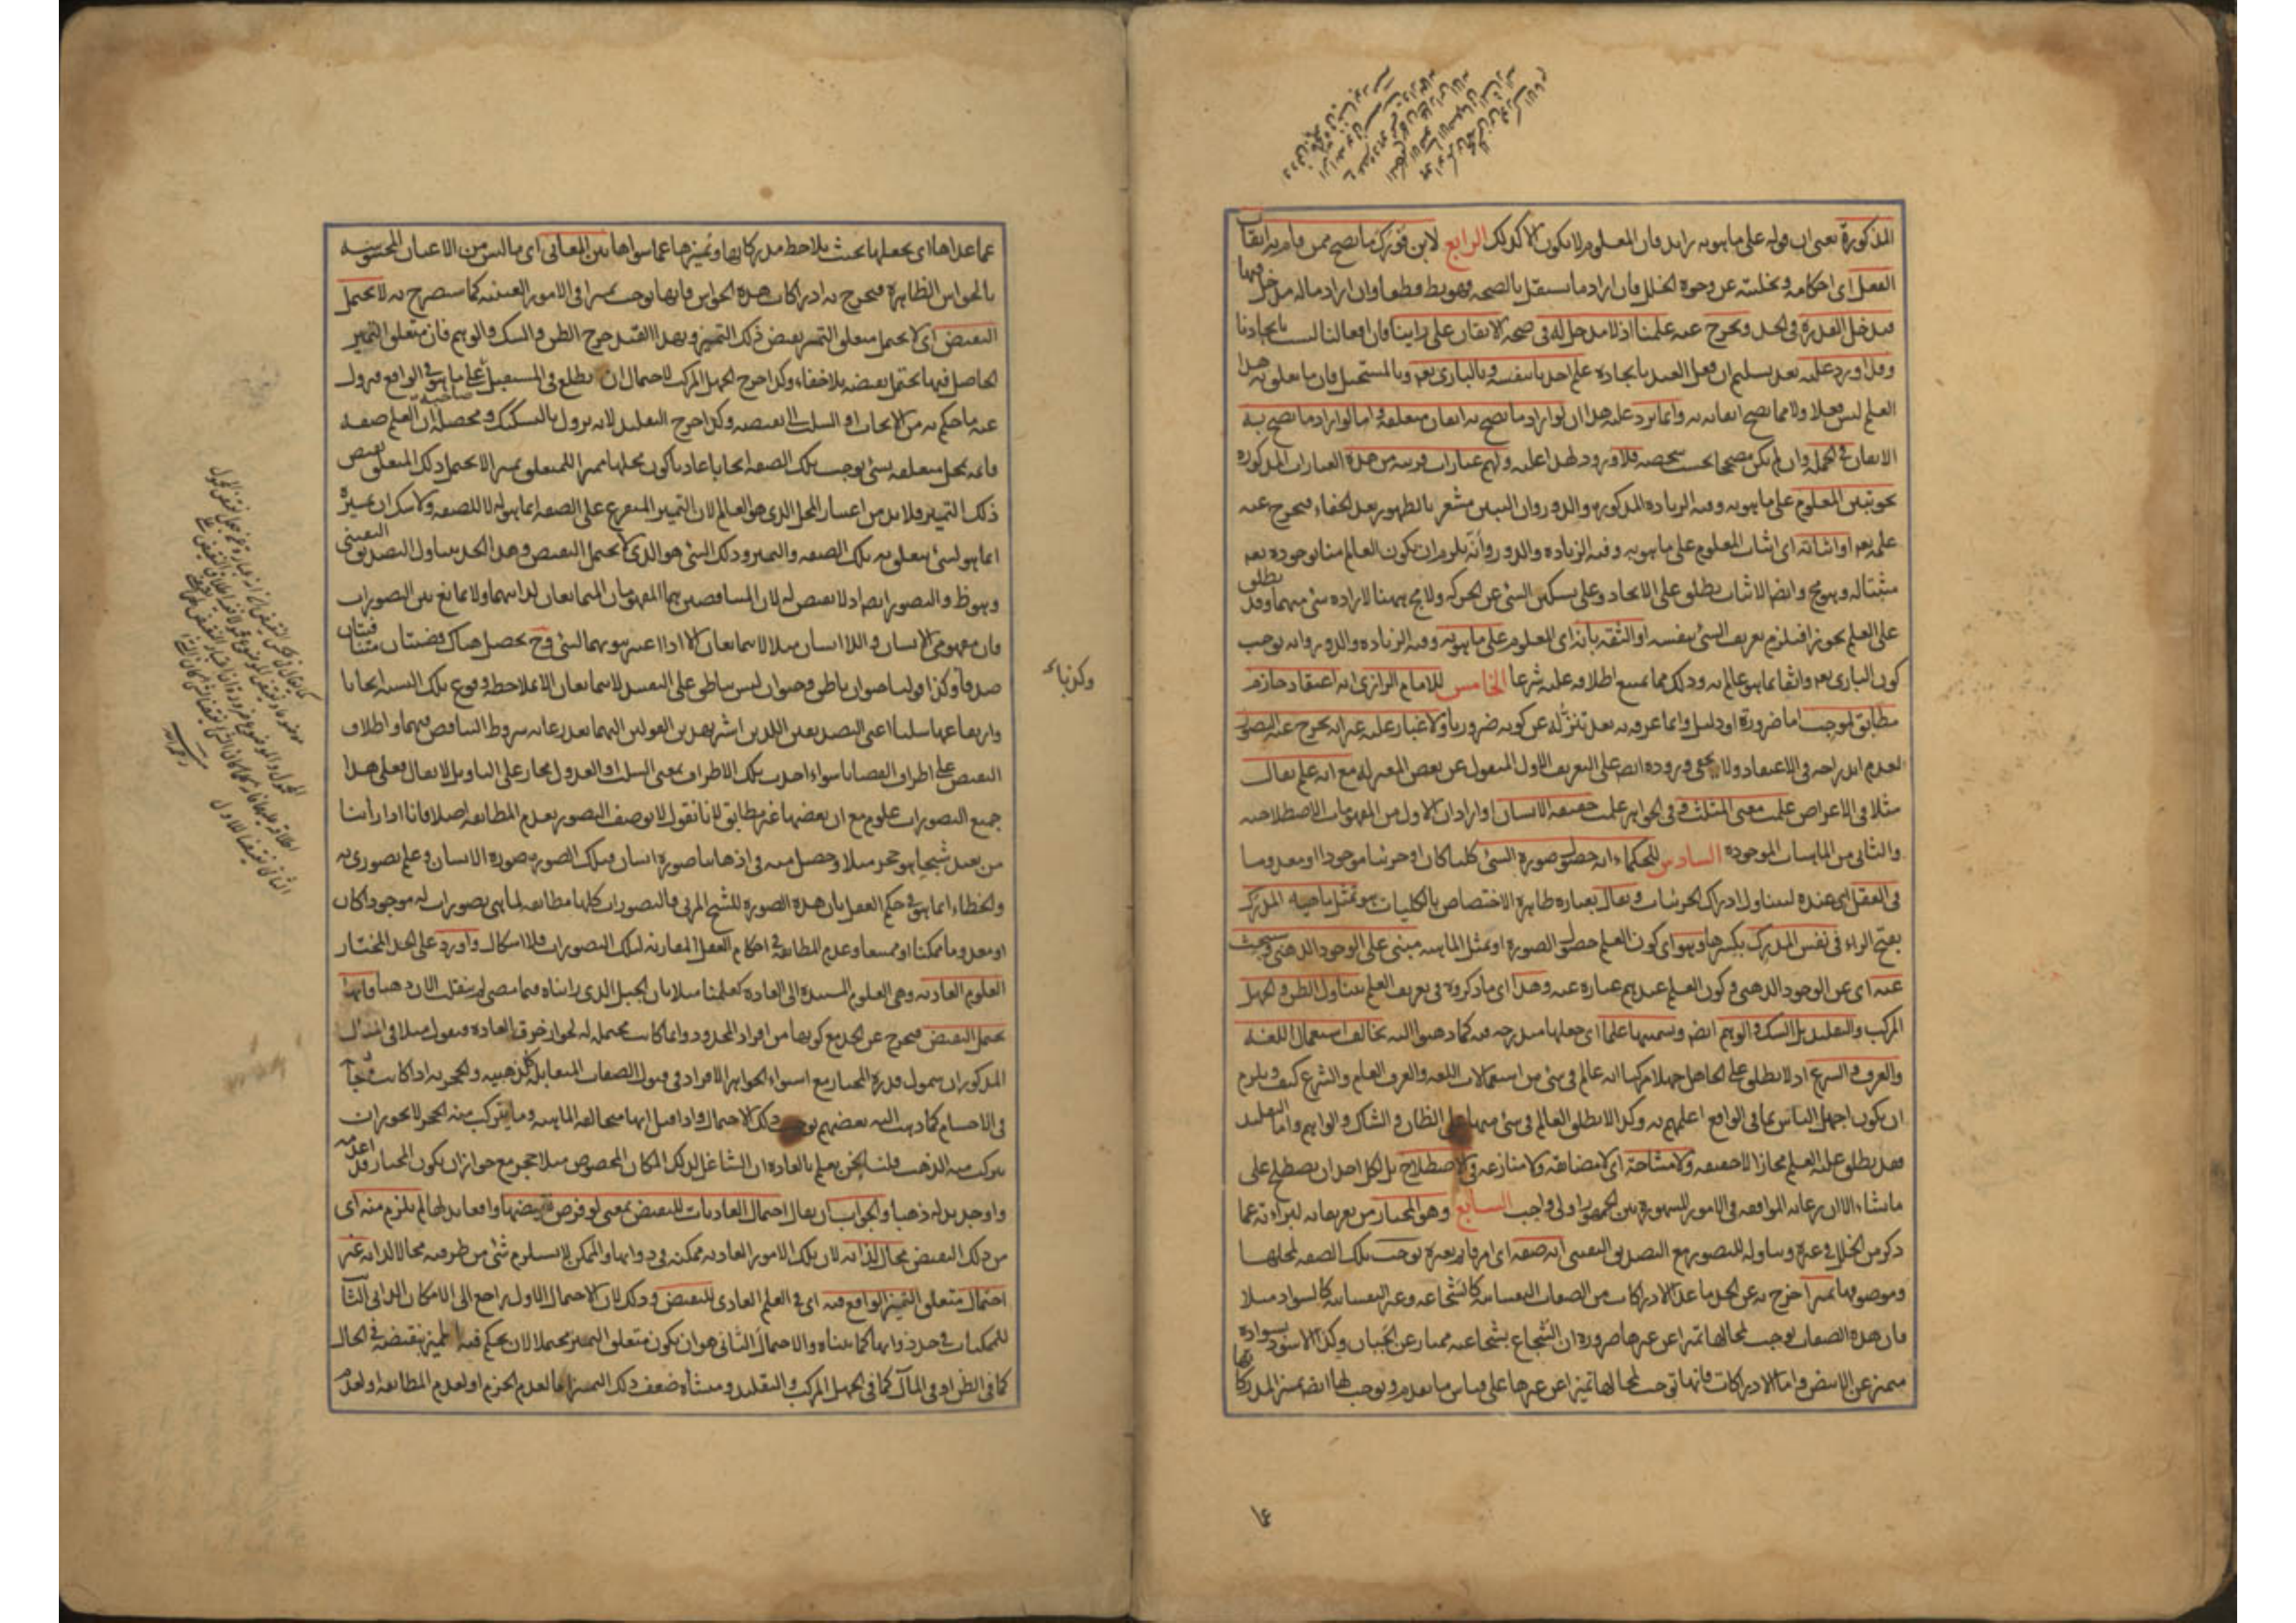 المذكورة يعنى ان قوله على ما هو به زايد فان المعلوم لا يكون الا كذلك الرابع لابن فورك ما يصح ممن قام به اتقان
الفعل اى احكامه وتخليته عن وجوه الخلل فان اراد ما يستقل بالصحة فهو بط قطعا وان اراد ماله مدخل فيها
فيدخل القدرة فى الحد ويخرج عنه علمنا اذ لا مدخل له فى صحة الاتقان على راينا فان افعالنا ليست بايجادنا
وقد اورد عليه بعد تسليم ان فعل العبد بايجاده علم احدنا بنفسه وبالبارى تعم وبالمستحيل فان ما تعلق به هذا
العلم ليس فعلا ولا مما يصح اتقانه به وانما يرد عليه هذا ان لو اراد ما يصح به اتقان متعلقه اما لو اراد ما يصح به
الاتقان فى الجملة وان لم يكن مصححا بحسب شخصه فلا ورود لهذا عليه ولهم عبارات قريبة من هذه العبارات المذكورة
نحو تبين المعلوم على ما هو به وفيه الزيادة المذكورة والدور وان التبين مشعر بالظهور بعد الخفاء فيخرج عنه
علمه تعم او اثباته اى اثبات المعلوم على ما هو به وفيه الزيادة والدور وانه يلزم ان يكون العالم منا بوجوده تعم
مثبتا له وهو مح وايضا الاثبات يطلق على الايجاد وعلى تسكين الشئ عن الحركة ولا مح ههنا لارادة شئ منهما وقد يطلق
على العلم تجوزا فيلزم تعريف الشئ بنفسه او الثقة بانه اى المعلوم على ما هو به وفيه الزيادة والدور وانه يوجب
كون البارى تعم واثقا بما هو عالم به وذلك مما يمتنع اطلاقه عليه شرعا الخامس للامام الرازى انه اعتقاد جازم
مطابق لموجب اما ضرورة او دليل وانما عرفه به بعد تنزله عن كونه ضروريا ولا غبار عليه غير انه يخرج عنه التصور
لعدم اندراجه فى الاعتقاد ولا يخفى وروده ايضا على التعريف الاول المنقول عن بعض المعتزلة مع انه علم يقال
مثلا فى الاعراض علمت معنى المثلث وفى الجواهر علمت حقيقة الانسان او اراد ان الاول من المفهومات الاصطلاحية
والثانى من الماهيات الموجودة السادس للحكماء انه حصول صورة الشئ كليا كان او جزئيا موجودا او معدوما
فى العقل اى عنده ليتناول ادراك الجزئيات ويقال بعبارة ظاهرة الاختصاص بالكليات هو تمثل ماهية المدرك
بفتح الراء فى نفس المدرك بكسرها وهو اى كون العلم حصول الصورة او تمثل الماهية مبنى على الوجود الذهنى وسنبحث
عنه اى عن الوجود الذهنى وكون العلم عندهم عبارة عنه وهذا اى ما ذكروه فى تعريف العلم يتناول الظن والجهل
المركب والتقليد بل الشك والوهم ايضا وتسميتها علما اى جعلها مندرجة فيه كما ذهبوا اليه يخالف استعمال اللغة
والعرف والشرع اذ لا يطلق على الجاهل جهلا مركبا انه عالم فى شئ من استعمالات اللغة والعرف العام والشرع كيف ويلزم
ان يكون اجهل الناس بما فى الواقع اعلمهم به وكذا لا يطلق العالم فى شئ منها على الظان والشاك والواهم واما التقليد
فقد يطلق عليه العلم مجازا لا حقيقة ولا مشاحة اى لا مضايقة ولا منازعة فى الاصطلاح بل لكل احد ان يصطلح على
ما شاء الا ان رعاية الموافقة فى الامور المشهورة بين الجمهور اولى واجب السابع وهو المختار من تعريفاته لبراءته عما
ذكر من الخلل فى غيره وتناوله للتصور مع التصديق اليقينى انه صفة اى امر قائم بغيره توجب تلك الصفة لمحلها
وموصوفها تميزا خرج به عن الحد ما عدا الادراكات من الصفات النفسانية كالشجاعة وغير النفسانية كالسواد مثلا
فان هذه الصفات توجب لمحالها تميزا عن غيرها ضرورة ان الشجاع بشجاعته ممتاز عن الجبان وكذا الاسود بسواده
متميز عن الابيض واما الادراكات فانها توجب لمحالها تميزا عن غيرها على قياس ما تقدم وتوجب لها ايضا تميز المدركاتها
عما عداها اى تجعلها بحيث تلاحظ مدركاتها وتميزها عما سواها بين المعانى اى ما ليس من الاعيان المحسوسة
بالحواس الظاهرة فيخرج به ادراكات هذه الحواس فانها توجب تميزا فى الامور العينية كما سيصرح به لا يحتمل
النقيض اى لا يحتمل متعلق التمييز نقيض ذلك التمييز وبهذا القيد خرج الظن والشك والوهم فان متعلق التمييز
الحاصل فيها يحتمل نقيضه بلا خفاء وكذا خرج الجهل المركب لاحتمال ان يطلع فى المستقبل صاحبه على ما هو فى الواقع فيزول
عنه ما حكم به من الايجاب او السلب الى نقيضه وكذا خرج التقليد لانه يزول بالتشكيك ومحصله ان العلم صفة
قائمة بمحل متعلقة بشئ توجب تلك الصفة ايجابا عاديا كون محلها مميزا للمتعلق تميزا لا يحتمل ذلك المتعلق نقيض
ذلك التمييز فلا بد من اعتبار المحل الذى هو العالم لان التمييز المتفرع على الصفة انما هو له لا للصفة ولا شك ان تميزه
انما هو لشئ يتعلق به تلك الصفة والتمييز وذلك الشئ هو الذى لا يحتمل النقيض وهذا الحد يتناول التصديق اليقينى
وهو ظ والتصور ايضا اذ لا نقيض له لان المتناقضين هما المفهومان المتمانعان لذاتيهما ولا تمانع بين التصورات
فان مفهومى الانسان واللا انسان مثلا لا يتمانعان الا اذا اعتبر ثبوتهما لشئ وح يحصل هناك قضيتان متنافيتان
صدقا وكذا قولنا حيوان ناطق وحيوان ليس بناطق على التقييد لا يتمانعان الا بملاحظة وقوع تلك النسبة ايجابا
وارتفاعها سلبا اعنى التصديقين اللذين اشير بهذين القولين اليهما بعد رعاية شروط التناقض فيهما واطلاق
النقيض على اطراف القضايا سواء اخذت تلك الاطراف بمعنى السلب او العدول مجاز على التاويل لا يقال فعلى هذا
جميع التصورات علوم مع ان بعضها غير مطابق لانا نقول لا يوصف التصور بعدم المطابقة اصلا فانا اذا راينا
من بعيد شبحا هو حجر مثلا وحصل منه فى اذهاننا صورة انسان فتلك الصورة صورة الانسان وعلم تصورى به
والخطاء انما هو فى حكم العقل بان هذه الصورة للشبح المرئى فالتصورات كلها مطابقة لما هى تصورات له موجودا كان
او معدوما ممكنا او ممتنعا وعدم المطابقة فى احكام العقل المقارنة لتلك التصورات فلا اشكال واورد على الحد المختار
العلوم العادية وهى العلوم المستندة الى العادة كعلمنا مثلا بان الجبل الذى رايناه فيما مضى لم ينقلب الان ذهبا فانها
تحتمل النقيض فيخرج عن الحد مع كونها من افراد المحدود وانما كانت محتملة له لجواز خرق العادة فنقول مثلا فى المثال
المذكور ان شمول قدرة المختار مع استواء الجواهر الافراد فى قبول الصفات المتقابلة كالذهبية والحجرية اذا كانت متجانسة
فى الاجسام كما ذهب اليه بعضهم يوجب ذلك الاحتمال واذا قيل انها متخالفة الماهية وما يتركب منه الحجر لا يجوز ان
يتركب منه الذهب قلنا نحن نعلم بالعادة ان الشاغل لذلك المكان المخصوص مثلا حجر مع جواز ان يكون المختار قد اعدمه
واوجد بدله ذهبا والجواب ان يقال احتمال العاديات للنقيض بمعنى لو فرض نقيضها واقعا بدلها لم يلزم منه اى
من ذلك النقيض محال لذاته لان تلك الامور العادية ممكنة فى ذواتها والممكن لا يستلزم شئ من طرفيه محالا لذاته غير
احتمال متعلق التمييز الواقع فيه اى فى العلم العادى للنقيض وذلك لان الاحتمال الاول راجع الى الامكان الذاتى الثابت
للممكنات فى حد ذواتها كما بيناه والاحتمال الثانى هو ان يكون متعلق التمييز محتملا لان يحكم فيه المميز بنقيضه فى الحال
كما فى الظن او فى المآل كما فى الجهل المركب والتقليد ومنشأه ضعف ذلك التمييز اما لعدم الجزم او لعدم المطابقة او لعدم